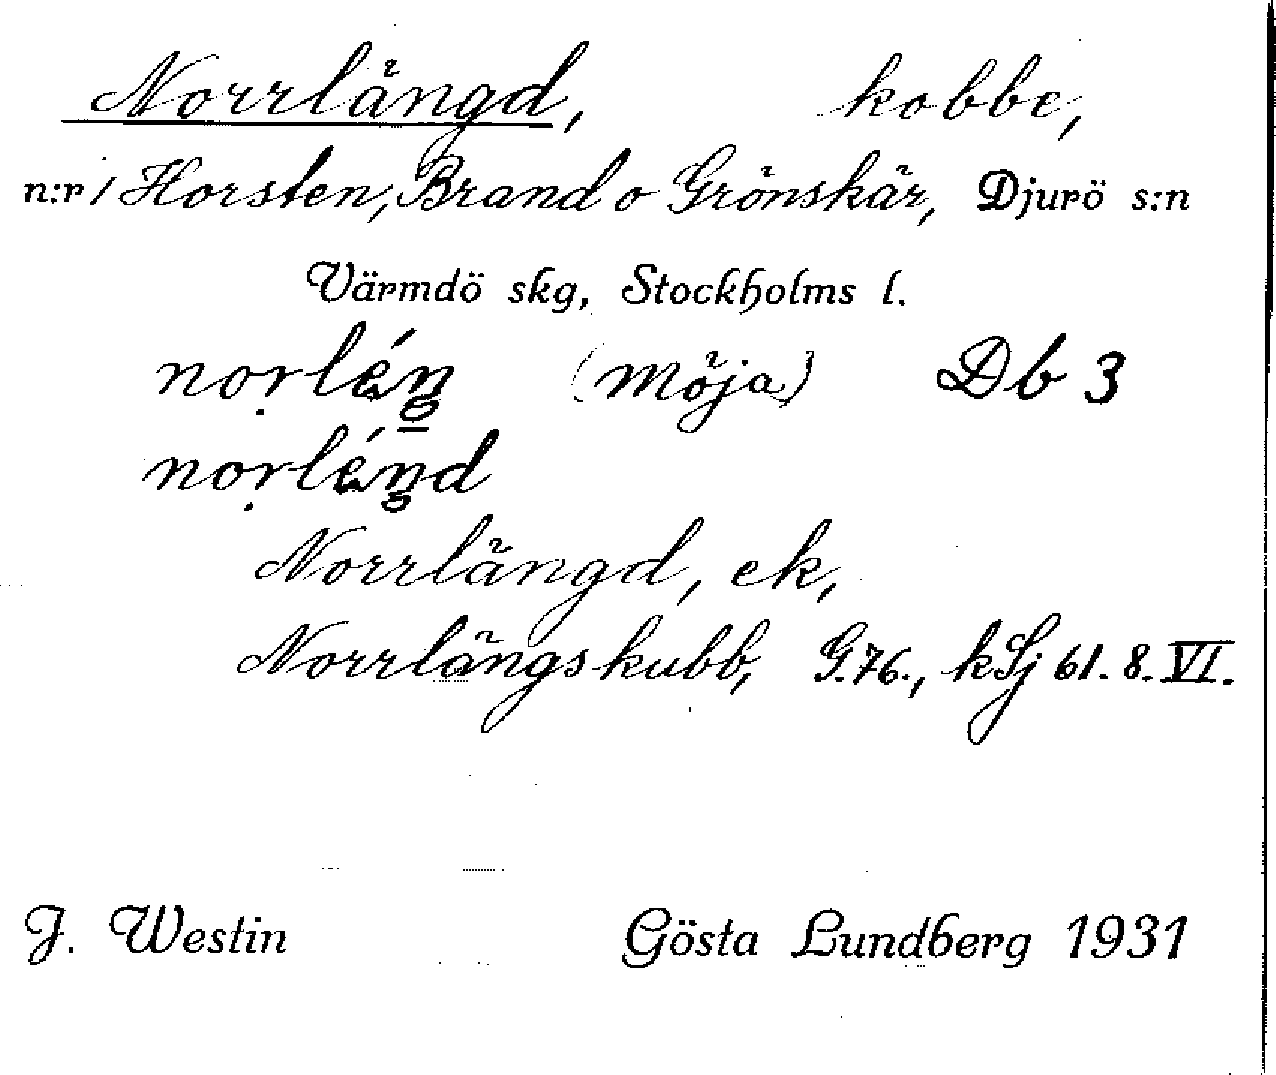 Norrlängd, kobbe,
n:r 1 Horsten, Brand o Grönskär, Djurö s:n
Värmdö skg, Stockholms l.
(Möja) Db 3
Norrlängd, ek,
Norrlängskubb, G.76., kSj 61. 8. VI.
J. Westin Gösta Lundberg 1931